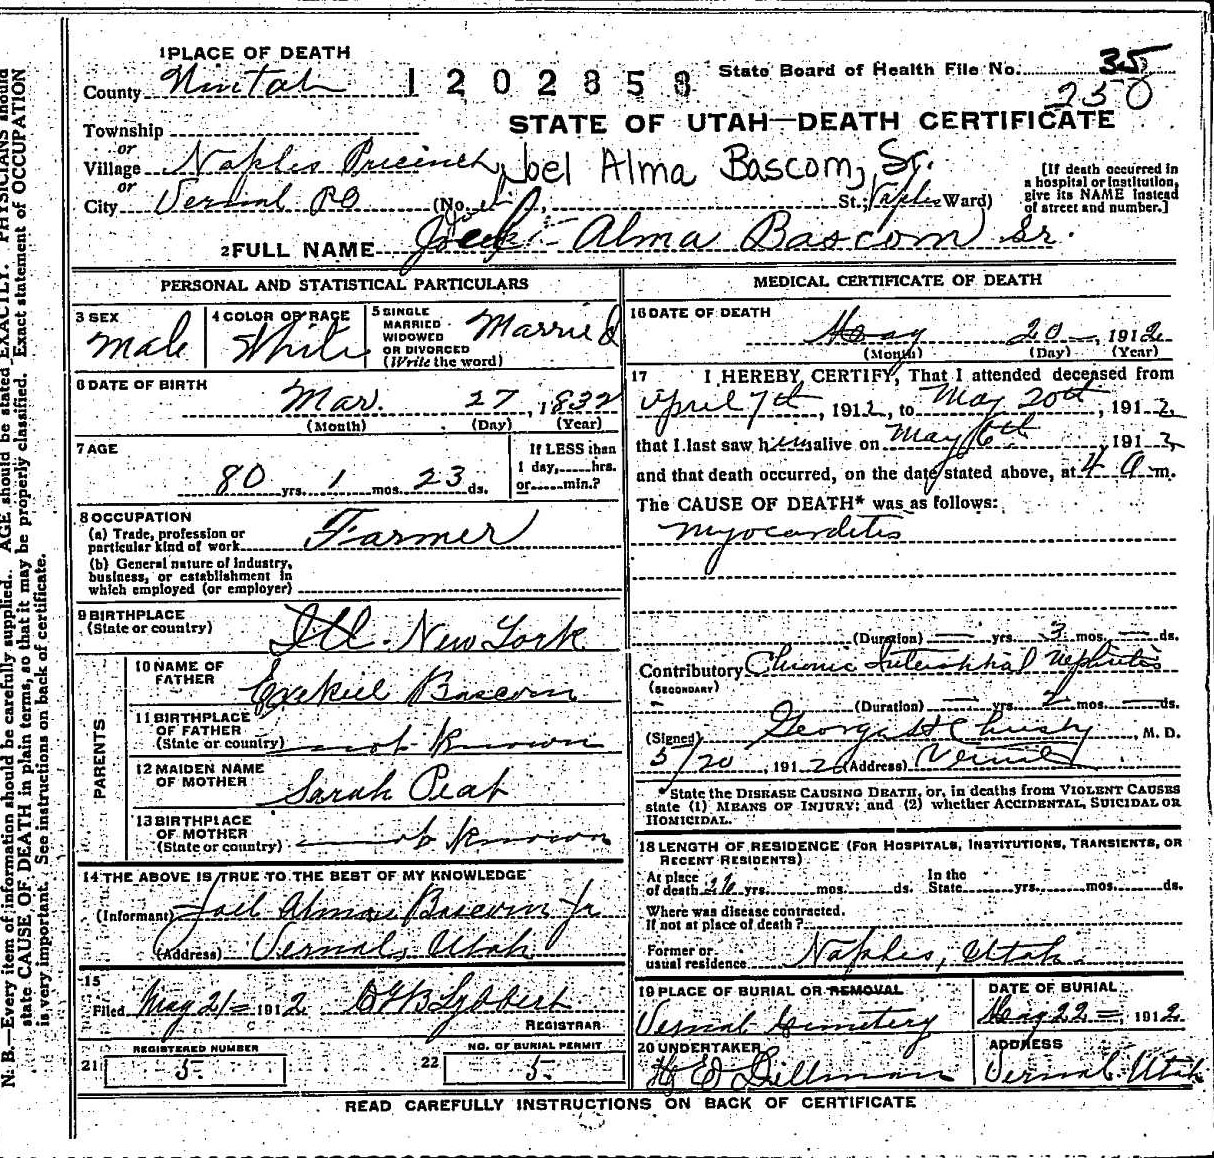 1 PLACE OF DEATH
County Uintah
1202858
State Board of Health File No. 35
250
STATE OF UTAH—DEATH CERTIFICATE
Township
or
Village Naples Precinct
Joel Alma Bascom, Sr.
or
City Vernal PO (No. St.; Naples Ward)
[If death occurred in a hospital or institution, give its NAME instead of street and number.]
2 FULL NAME Joel Alma Bascom Sr.
PERSONAL AND STATISTICAL PARTICULARS
3 SEX
Male
4 COLOR OR RACE
White
5 SINGLE
MARRIED
WIDOWED
OR DIVORCED
(Write the word)
Married
6 DATE OF BIRTH
Mar. 27, 1832
(Month) (Day) (Year)
7 AGE
80 yrs. 1 mos. 23 ds.
If LESS than
1 day, hrs.
or min.?
8 OCCUPATION
(a) Trade, profession or
particular kind of work Farmer
(b) General nature of industry,
business, or establishment in
which employed (or employer)
9 BIRTHPLACE
(State or country)
Ill. New York
PARENTS
10 NAME OF
FATHER
Ezekiel Bascom
11 BIRTHPLACE
OF FATHER
(State or country) not known
12 MAIDEN NAME
OF MOTHER
Sarah Peat
13 BIRTHPLACE
OF MOTHER
(State or country) not known
14 THE ABOVE IS TRUE TO THE BEST OF MY KNOWLEDGE
(Informant) Joel Almon Bascom Jr
(Address) Vernal, Utah
15
Filed May 21 1912
REGISTRAR
REGISTERED NUMBER
21 5
NO. OF BURIAL PERMIT
22 5
MEDICAL CERTIFICATE OF DEATH
16 DATE OF DEATH
May 20, 1912
(Month) (Day) (Year)
17 I HEREBY CERTIFY, That I attended deceased from
April 7th, 1912, to May 20th, 1912
that I last saw him alive on May 6th, 1912,
and that death occurred, on the date stated above, at 4 a m.
The CAUSE OF DEATH* was as follows:
Myocarditis
(Duration) — yrs. 3 mos. — ds.
Contributory Chronic Interstitial Nephritis
(SECONDARY)
(Duration) — yrs. 2 mos. — ds.
(Signed) George H Christy, M. D.
5/20, 1912 (Address) Vernal
*State the DISEASE CAUSING DEATH, or, in deaths from VIOLENT CAUSES
state (1) MEANS OF INJURY; and (2) whether ACCIDENTAL, SUICIDAL OR
HOMICIDAL.
18 LENGTH OF RESIDENCE (FOR HOSPITALS, INSTITUTIONS, TRANSIENTS, OR
RECENT RESIDENTS)
At place
of death yrs. mos. ds.
In the
State yrs. mos. ds.
Where was disease contracted.
If not at place of death?
Former or
usual residence Naples, Utah
19 PLACE OF BURIAL OR REMOVAL
Vernal Cemetery
DATE OF BURIAL
May 22, 1912
20 UNDERTAKER
Dillman
ADDRESS
Vernal Utah
READ CAREFULLY INSTRUCTIONS ON BACK OF CERTIFICATE
N. B.—Every item of information should be carefully supplied. AGE should be stated EXACTLY. PHYSICIANS should
state CAUSE OF DEATH in plain terms, so that it may be properly classified. Exact statement of OCCUPATION
is very important. See instructions on back of certificate.